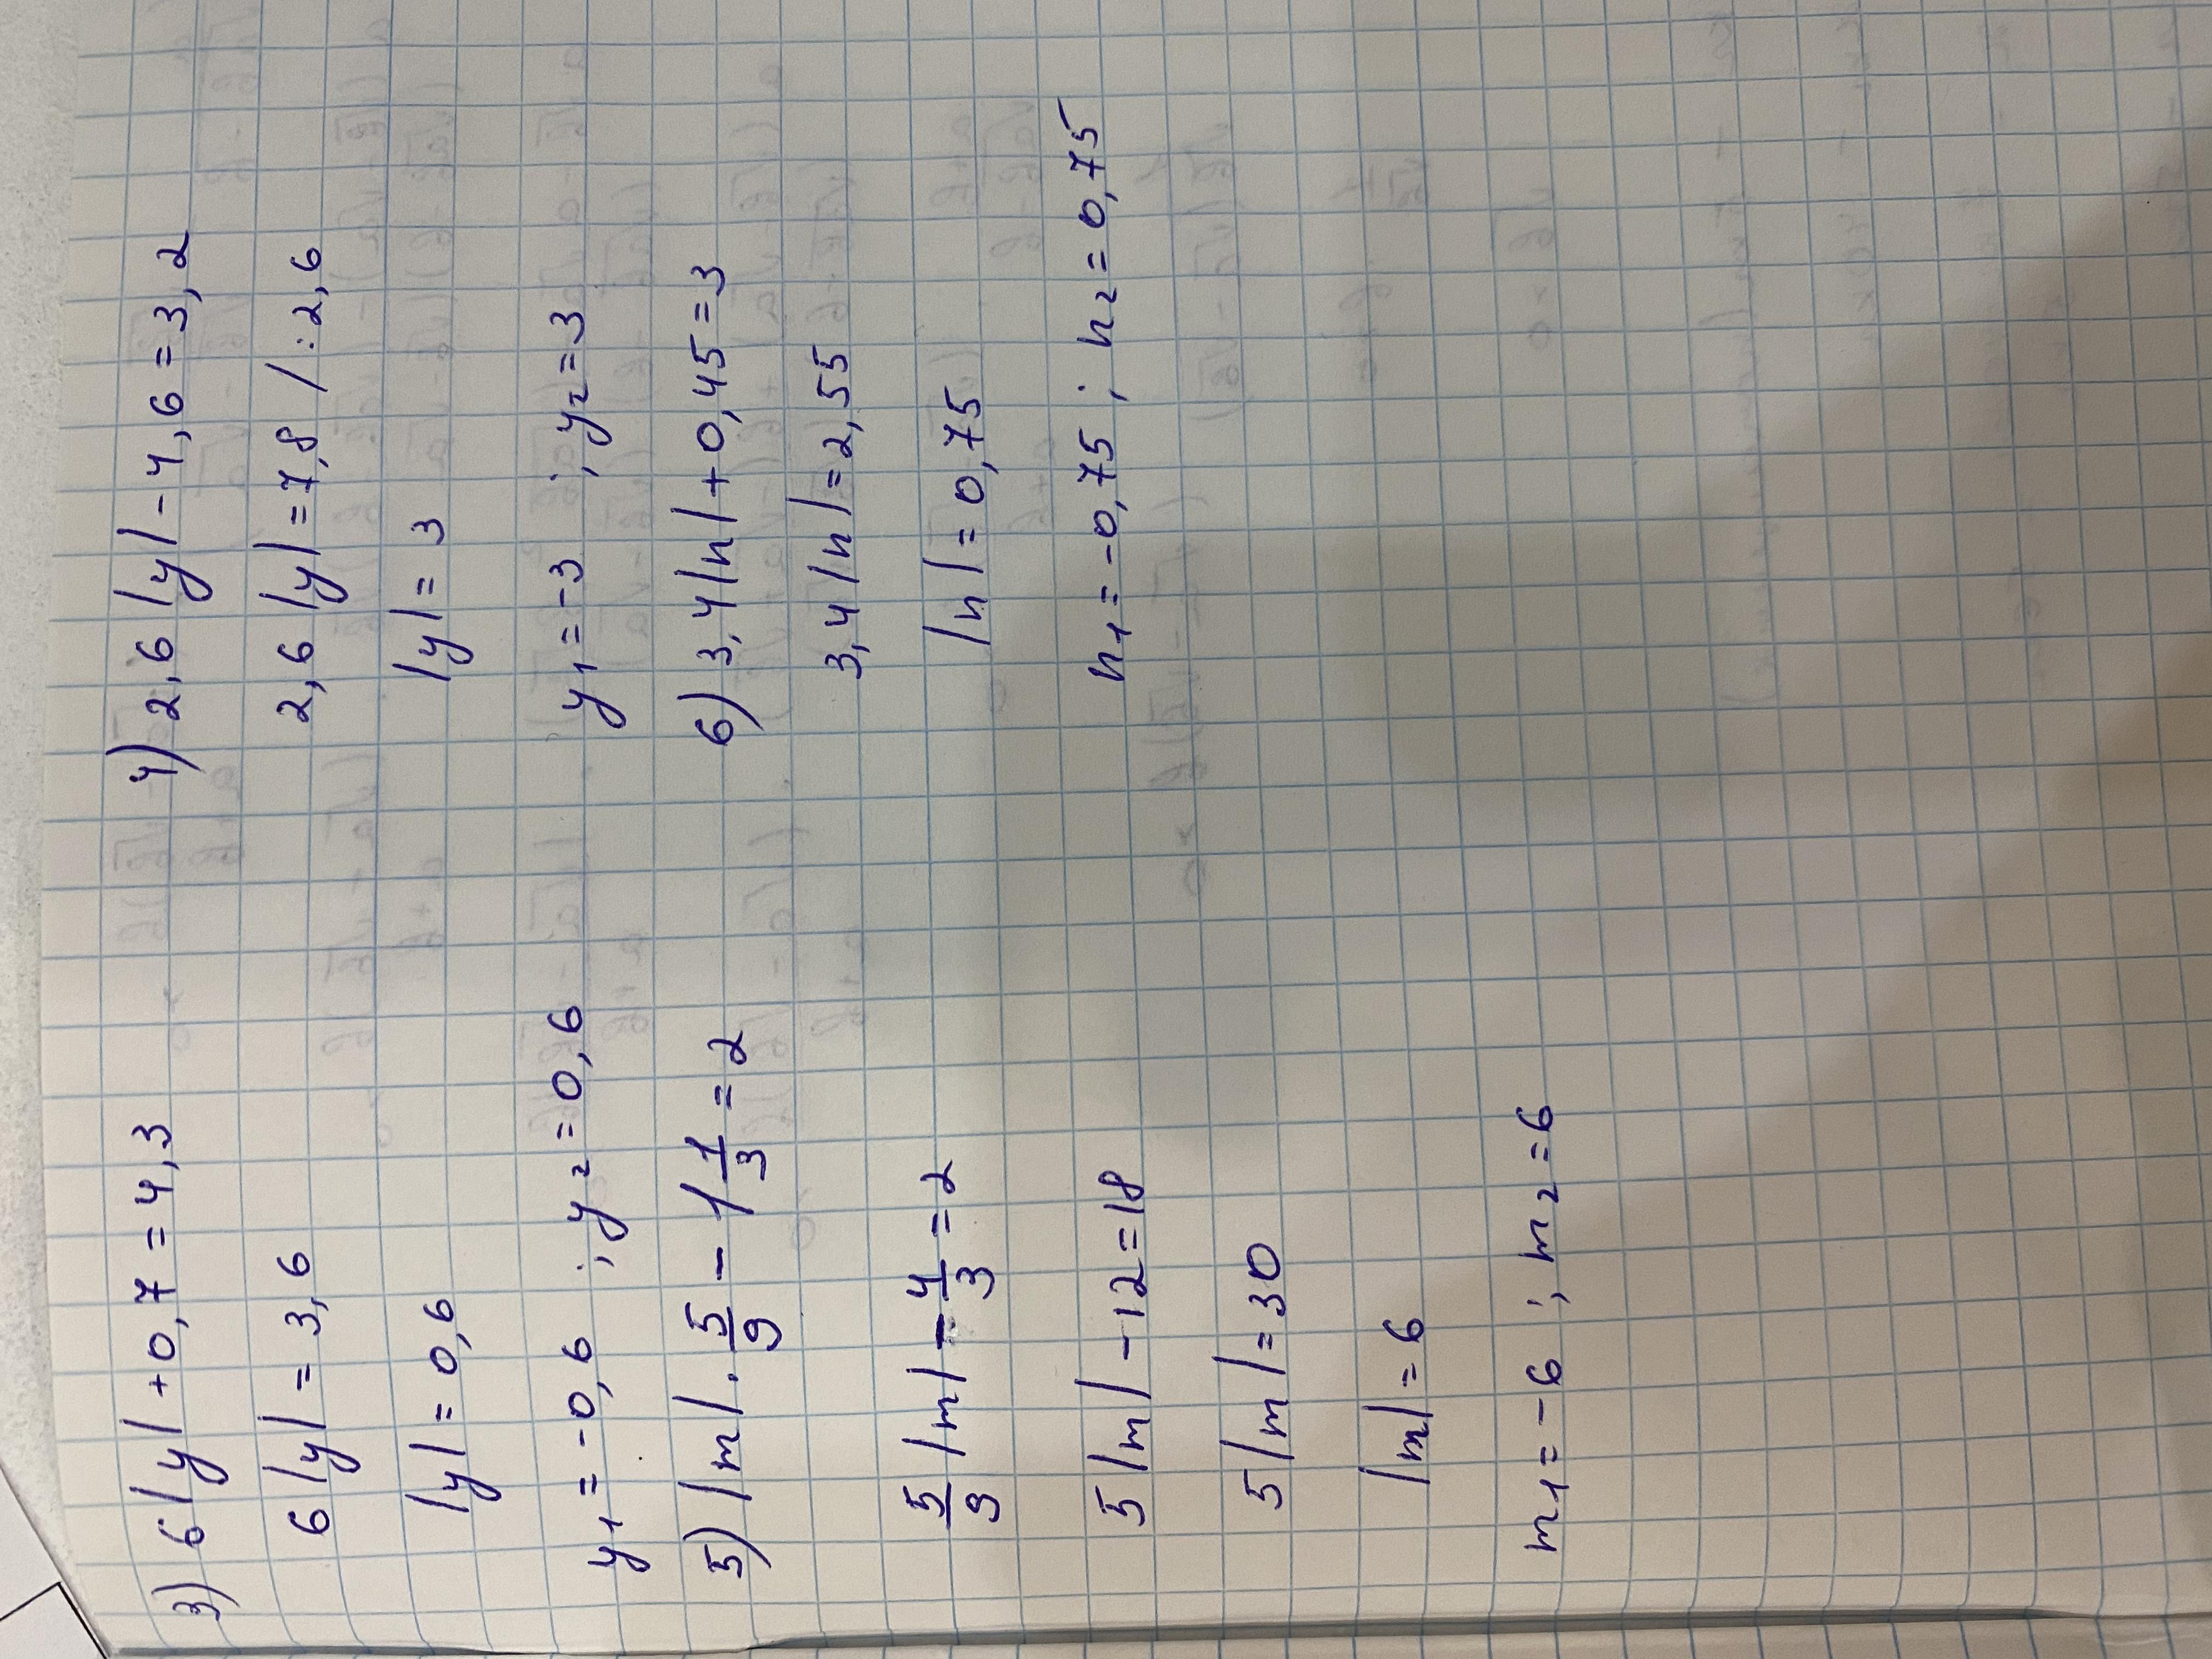 3) 6|y| + 0,7 = 4,3
6|y| = 3,6
|y| = 0,6
y₁ = -0,6 ; y₂ = 0,6
5) |m| · 5/9 - 1 1/3 = 2
5/9 |m| - 4/3 = 2
5|m| - 12 = 18
5|m| = 30
|m| = 6
m₁ = -6 ; m₂ = 6
4) 2,6|y| - 4,6 = 3,2
2,6|y| = 7,8 / : 2,6
|y| = 3
y₁ = -3 ; y₂ = 3
6) 3,4|n| + 0,45 = 3
3,4|n| = 2,55
|n| = 0,75
n₁ = -0,75 ; n₂ = 0,75